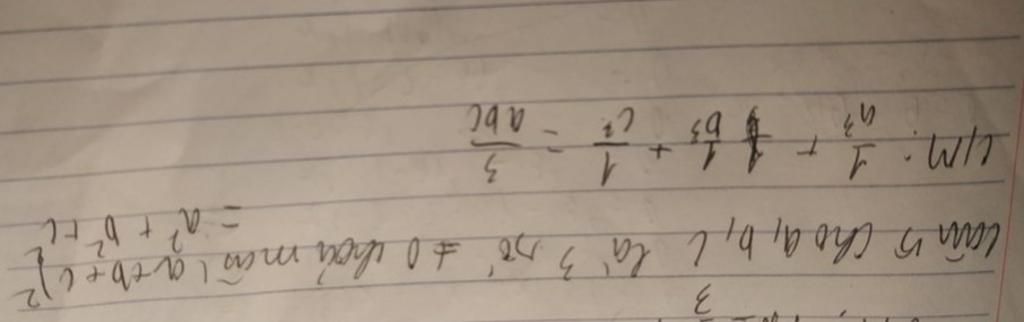 Câu 5 Cho a, b, c là 3 số ≠ 0 thoả mãn (a+b+c)²
= a² + b² + c²
C/M: 1/a³ + 1/b³ + 1/c³ = 3/abc